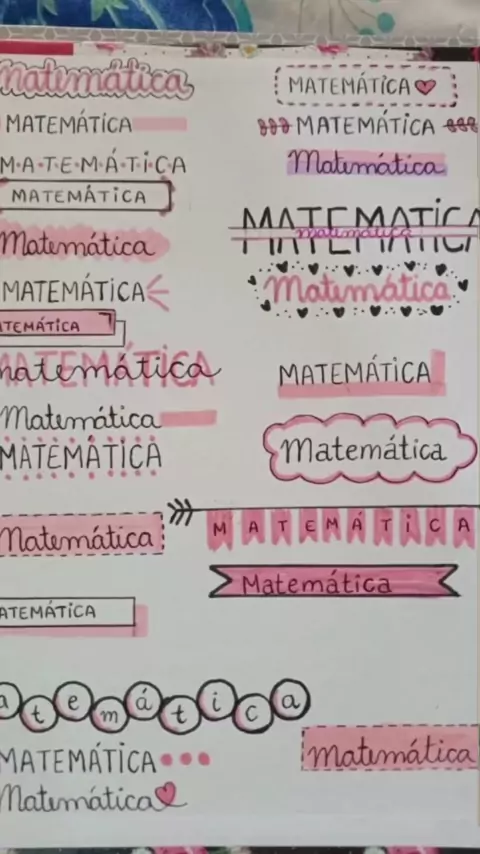 Matemática
MATEMÁTiCA
M·A·T·E·M·Á·T·i·C·A
MATEMÁTiCA
Matemática
MATEMÁTiCA
ATEMÁTiCA
MATEMÁTICA
matemática
Matemática
MATEMÁTiCA
Matemática
ATEMÁTiCA
atemática
MATEMÁTiCA
Matemática
MATEMÁTiCA
MATEMÁTiCA
Matemática
MATEMATiCA
matemática
Matemática
MATEMÁTiCA
Matemática
M A T E M Á T i C A
Matemática
Matemática